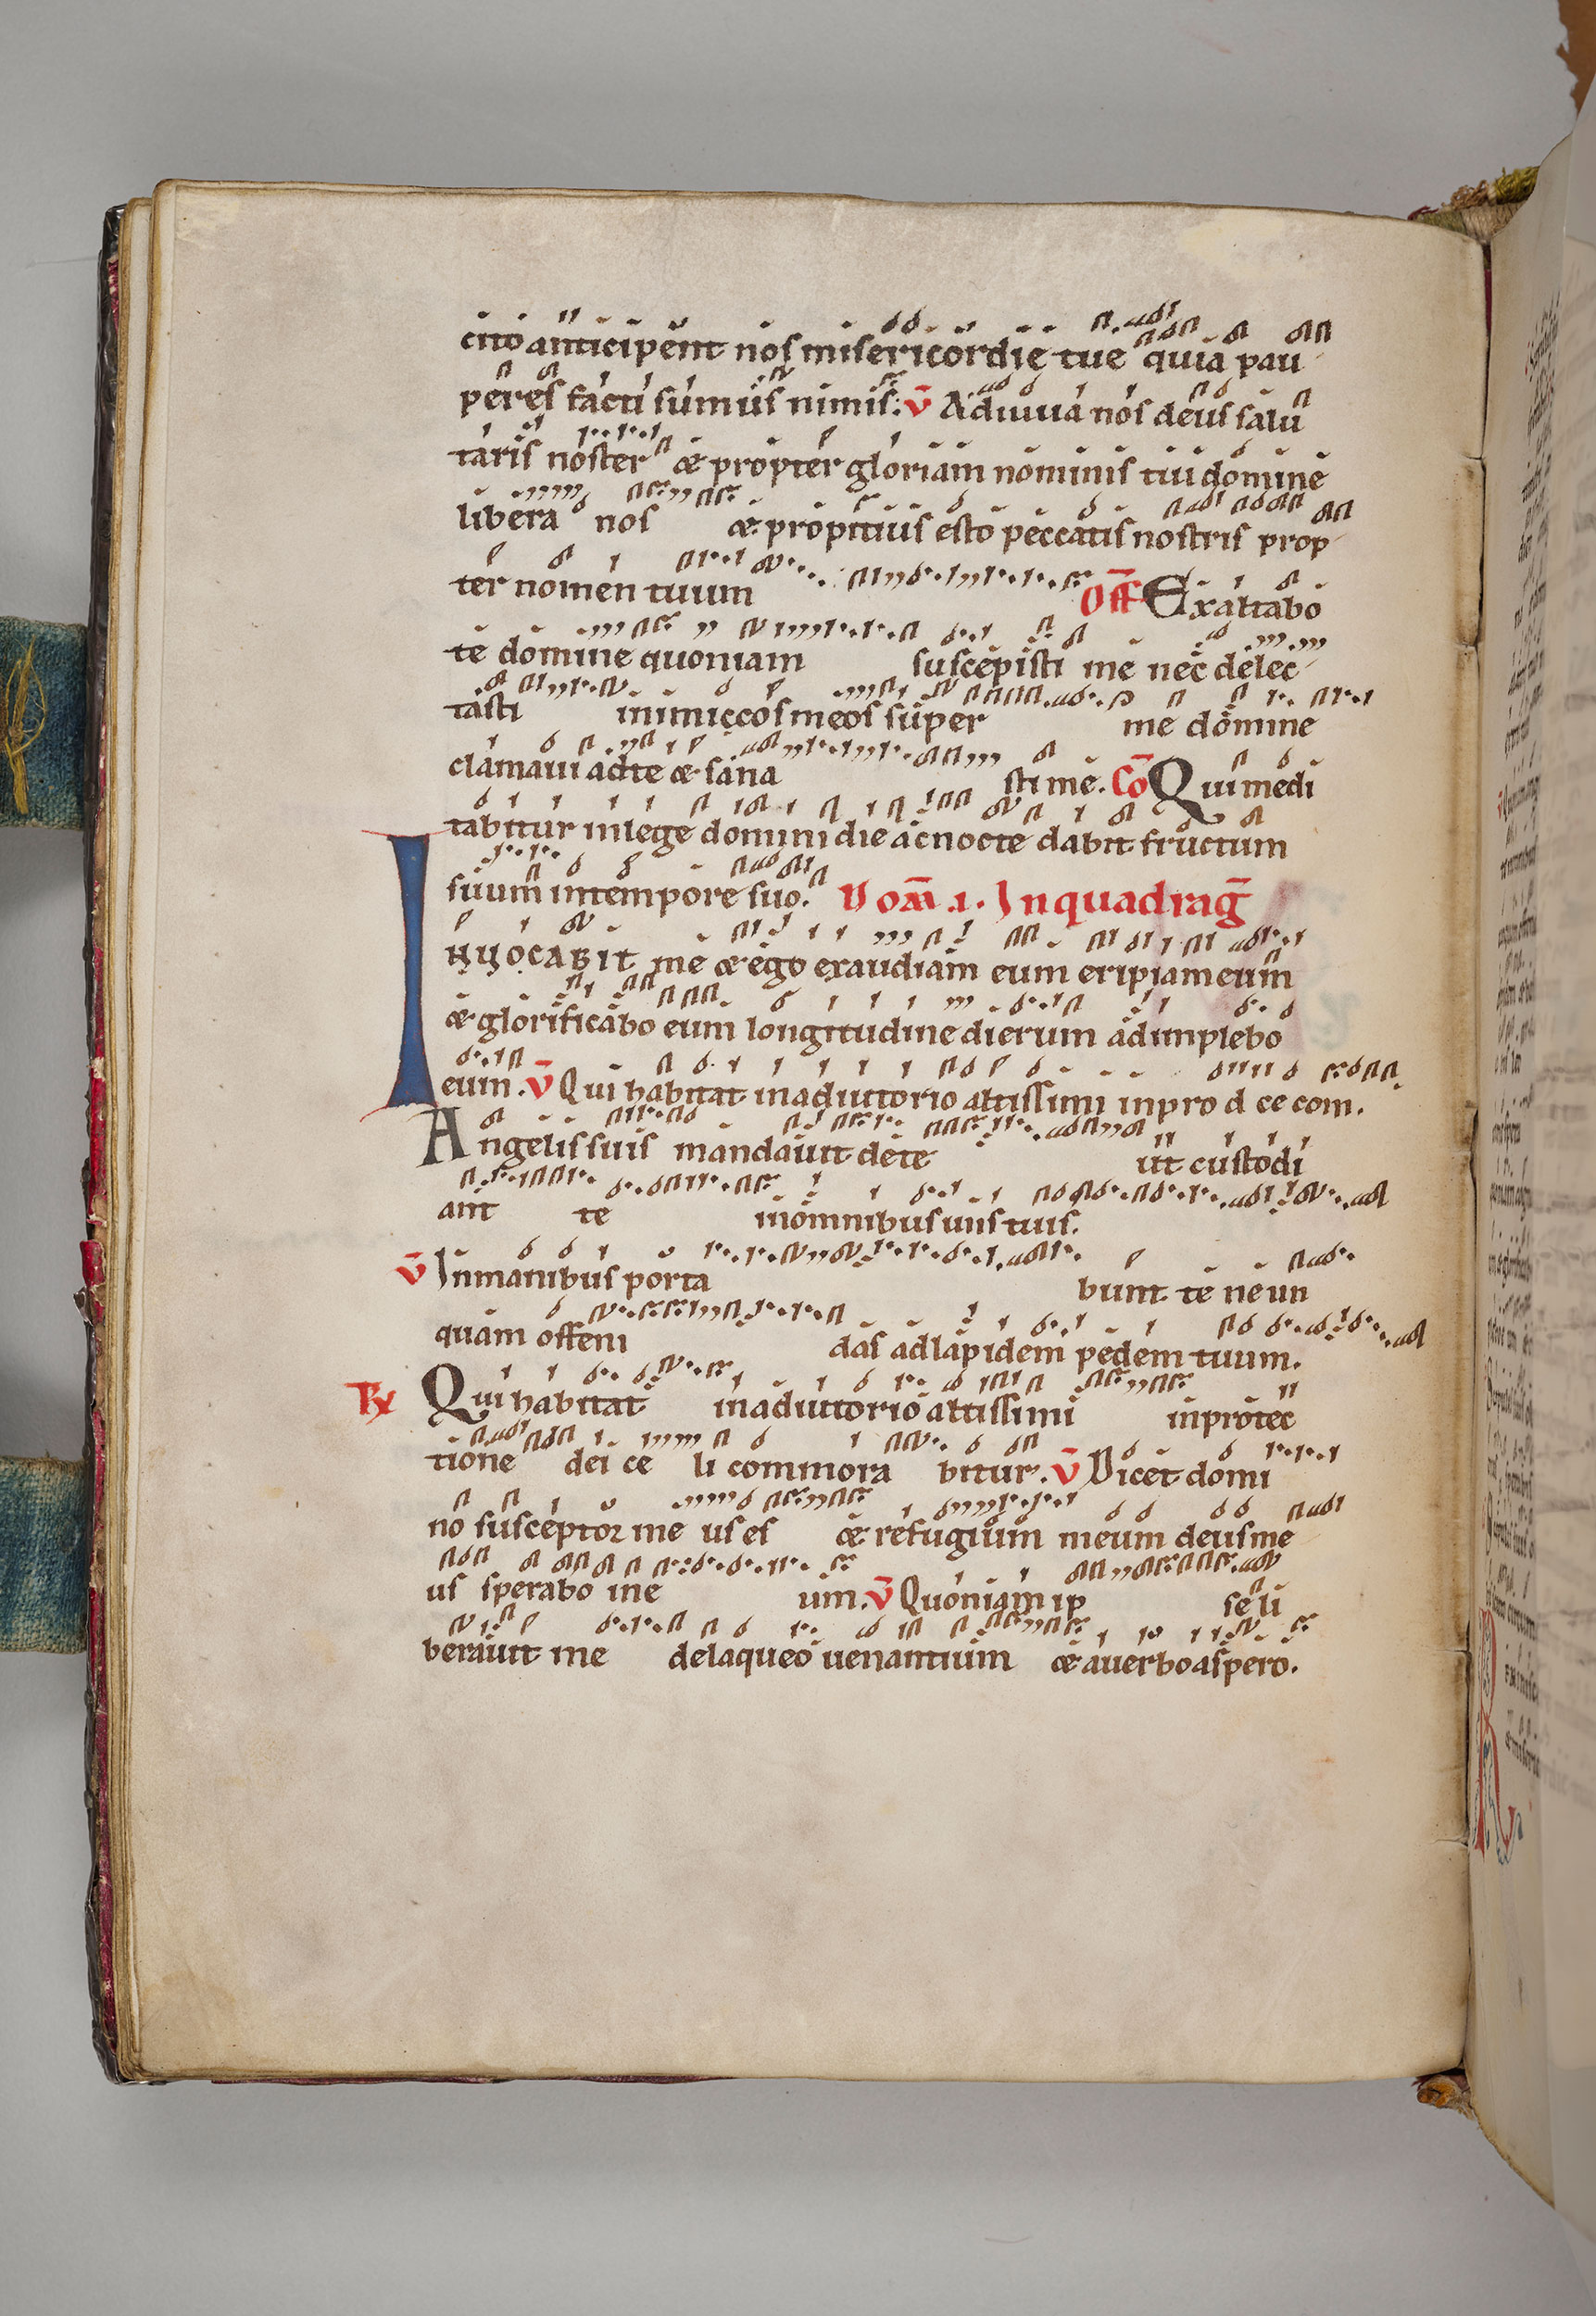 cito anticipent nos misericordie tue quia pau
peres facti sumus nimis: v̄ Adiuua nos deus salu
taris noster & propter gloriam nominis tui domine
libera nos & propitius esto peccatis nostris prop
ter nomen tuum Off Exaltabo
te domine quoniam suscepisti me nec delec
tasti inimiccos meos super me domine
clamaui ad te & sana sti me. Cō Qui medi
tabitur in lege domini die ac nocte dabit fructum
suum in tempore suo. Dom̄ .I. In quadrag̅
INUOCABIT me & ego exaudiam eum eripiam eum
& glorificabo eum longitudine dierum adimplebo
eum. v̄ Qui habitat in adiutorio altissimi in pro d ce com.
Angelis suis mandauit de te ut custodi
ant te in omnibus uiis tuis.
v̄ In manibus porta bunt te ne un
quam offeni das ad lapidem pedem tuum.
℞ Qui habitat in adiutorio altissimi in protec
tione dei ce li commora bitur. v̄ Dicet domi
no susceptor me us es & refugium meum deus me
us sperabo in e um. v̄ Quoniam ip se li
berauit me de laqueo uenantium & a uerbo aspero.